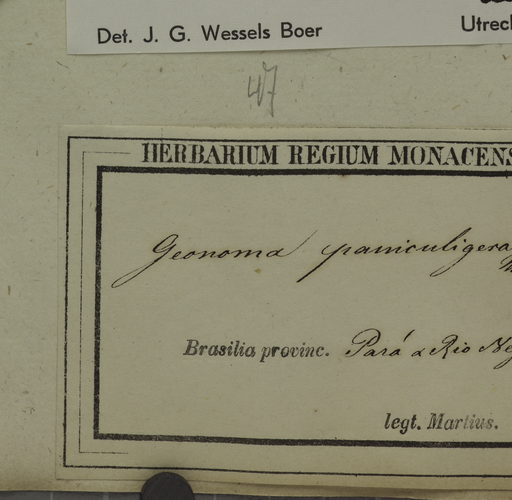 Det. J. G. Wessels Boer
Utrech
47
HERBARIUM REGIUM MONACENS
Geonoma paniculigera
Brasilia provinc. Pará & Rio Neg
legt. Martius.